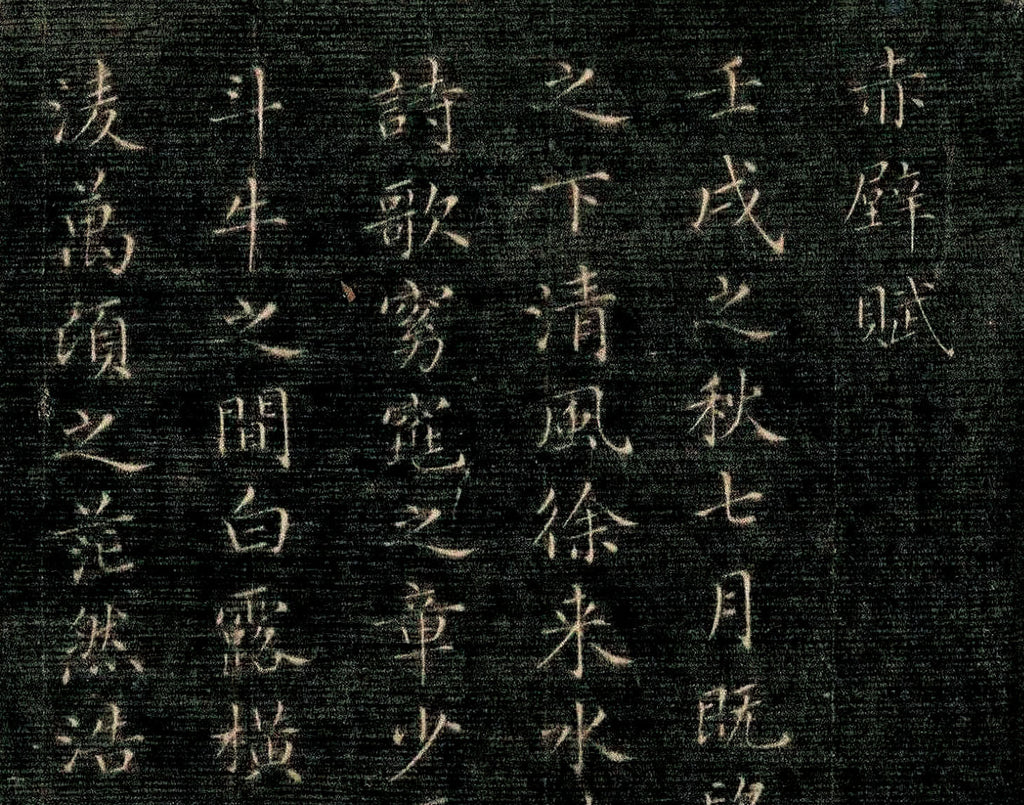 赤壁賦
壬戌之秋七月既望
之下清風徐来水
詩歌窈窕之章少
斗牛之間白露橫
淩萬頃之茫然浩